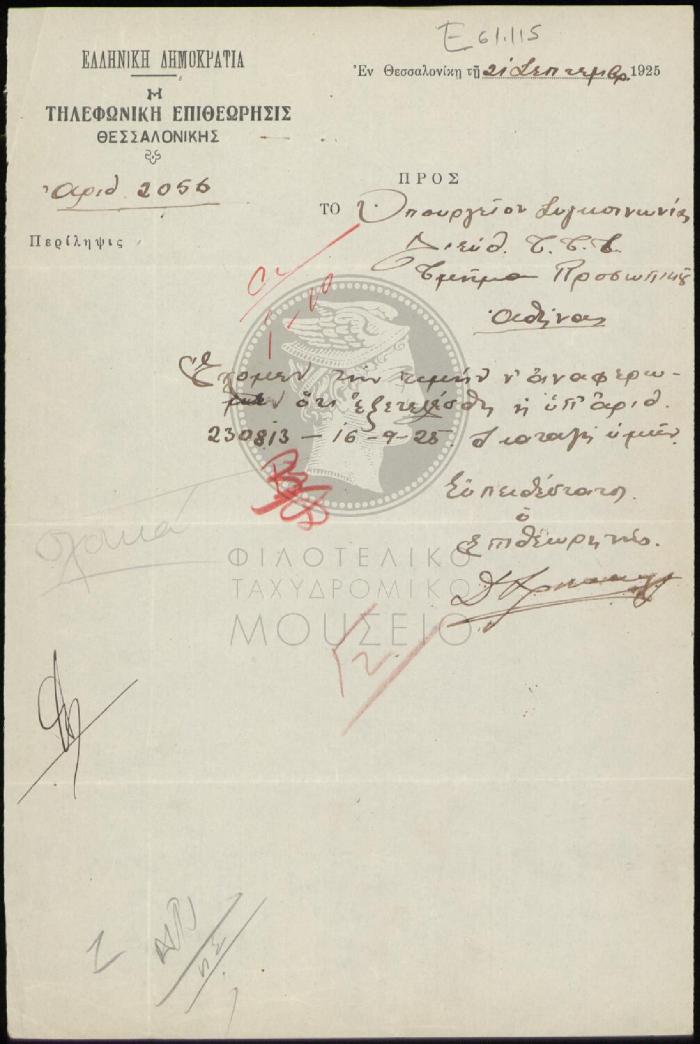 Ε 61.115
ΕΛΛΗΝΙΚΗ ΔΗΜΟΚΡΑΤΙΑ
Η
ΤΗΛΕΦΩΝΙΚΗ ΕΠΙΘΕΩΡΗΣΙΣ
ΘΕΣΣΑΛΟΝΙΚΗΣ
Ἐν Θεσσαλονίκῃ τῇ 21 Σεπτεμβρ 1925
Ἀριθ. 2056
ΠΡΟΣ
ΤΟ Ὑπουργεῖον Συγκοινωνίας
Διεύθ. Τ.Τ.Τ.
Τμῆμα Προσωπικοῦ
Ἀθήνας
Περίληψις
Ἔχομεν τὴν τιμὴν ν' ἀναφέρω-
μεν ὅτι ἐξετελέσθη ἡ ὑπ' ἀριθ.
230813 - 16-9-25 διαταγὴ ὑμῶν.
Εὐπειθέστατος
ὁ
Ἐπιθεωρητής.
ΦΙΛΟΤΕΛΙΚΟ
ΤΑΧΥΔΡΟΜΙΚΟ
ΜΟΥΣΕΙΟ